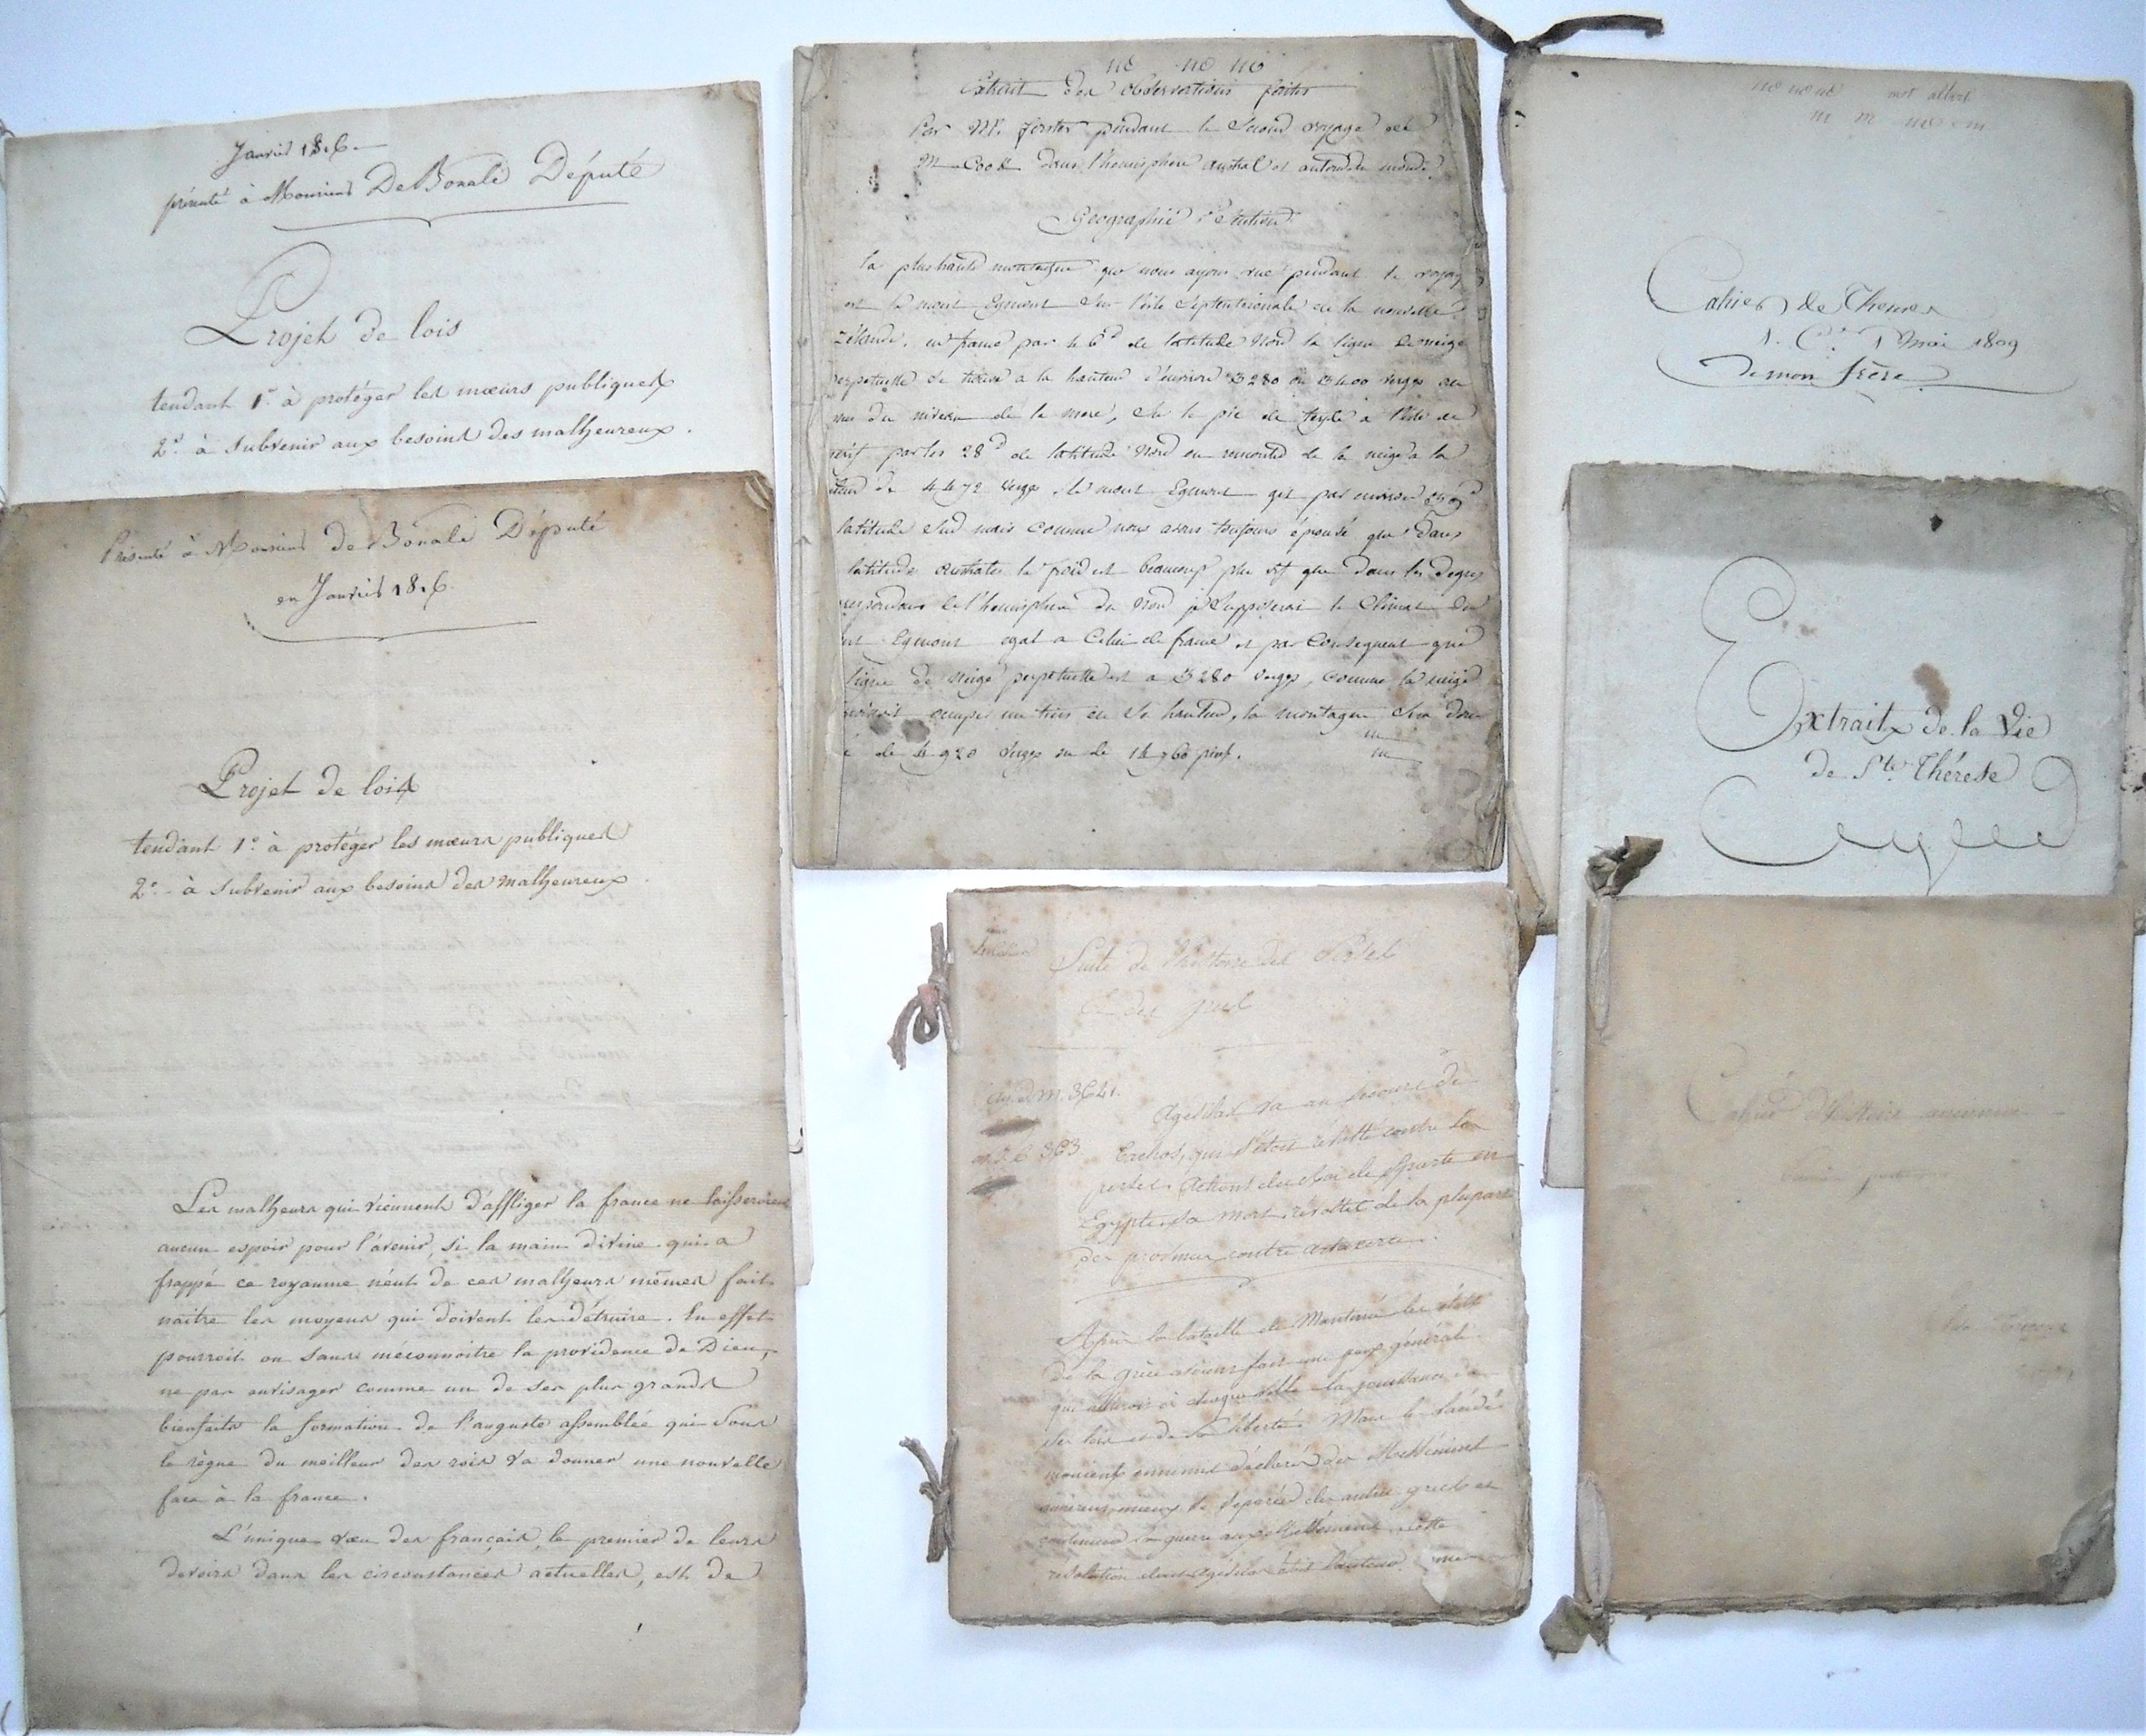 Janvier 1816
présenté à Monsieur De Bonald Député
Projet de lois
tendant 1° à protéger les mœurs publiques
2° à subvenir aux besoins des malheureux.
Présenté à Monsieur de Bonald Député
en Janvier 1816.
Projet de lois
tendant 1° à protéger les mœurs publiques
2° à subvenir aux besoins des malheureux
Les malheurs qui viennent d'affliger la france ne laisseroient
aucun espoir pour l'avenir, si la main divine qui a
frappé ce royaume n'eut de ces malheurs mêmes fait
naitre les moyens qui doivent les détruire. En effet
pourroit on sans méconnoitre la providence de Dieu,
ne pas envisager comme un de ses plus grands
bienfaits la formation de l'auguste assemblée qui sous
le règne du meilleur des rois va donner une nouvelle
face à la france.
L'unique vœu des français, le premier de leurs
devoirs dans les circonstances actuelles, est de
Extrait des observations faites
Par Mr. forster pendant le Second voyage de
M Cook dans l'hemisphere austral et autour du monde
Geographie
la plus haute montagne que nous ayons vue pendant le voyag
est le mont Egmont sur l'isle Septentrionale de la nouvelle
Zélande. en france par le 6d de latitude Nord la ligne de neige
perpetuelle se trouve a la hauteur d'environ 3280 ou 3400 verges au
du niveau de la mere, Et le pic de teyde a l'isle de
par les 28d de latitude Nord on rencontre de la neige a la
de 4472 verges, le mont Egmont git par environ
latitude Sud mais comme nous avons toujours éprouvé que dans
latitudes australes le froid est beaucoup plus vif que dans les degres
de l'hemisphere du Nord je Supposerai le Climat du
Egmont egal a Celui de france et par Consequent que
ligne de neige perpetuelle est a 3280 verges, comme la neige
occuper un tiers de sa hauteur, la montagne Sera donc
de 4920 verges ou de 14760 pieds.
Suite de l'histoire des Perses
et des grecs
an. d. m. 3641.
363
Agésilas va au secours de
Tachos, qui s'étoit révolté contre les
perses. Actions du Roi de Sparte en
Egypte, sa mort. révolte de la plupart
des provinces contre artaxerce.
Après la bataille de Mantinée les états
de la grèce avoient fait une paix générale
qui assuroit à chaque ville la jouissance de
ses loix et de sa liberté. Mais les Lacédé
moniens ennemis déclarés des Messéniens
aimèrent mieux se séparer des autres grecs et
continuer la guerre aux Messéniens. cette
résolution dont Agésilas étoit l'auteur
Cahier de Themes
1 Mai 1809
De mon frère
Extraits de la Vie
de Ste. Thérese
Cahier d'histoire ancienne